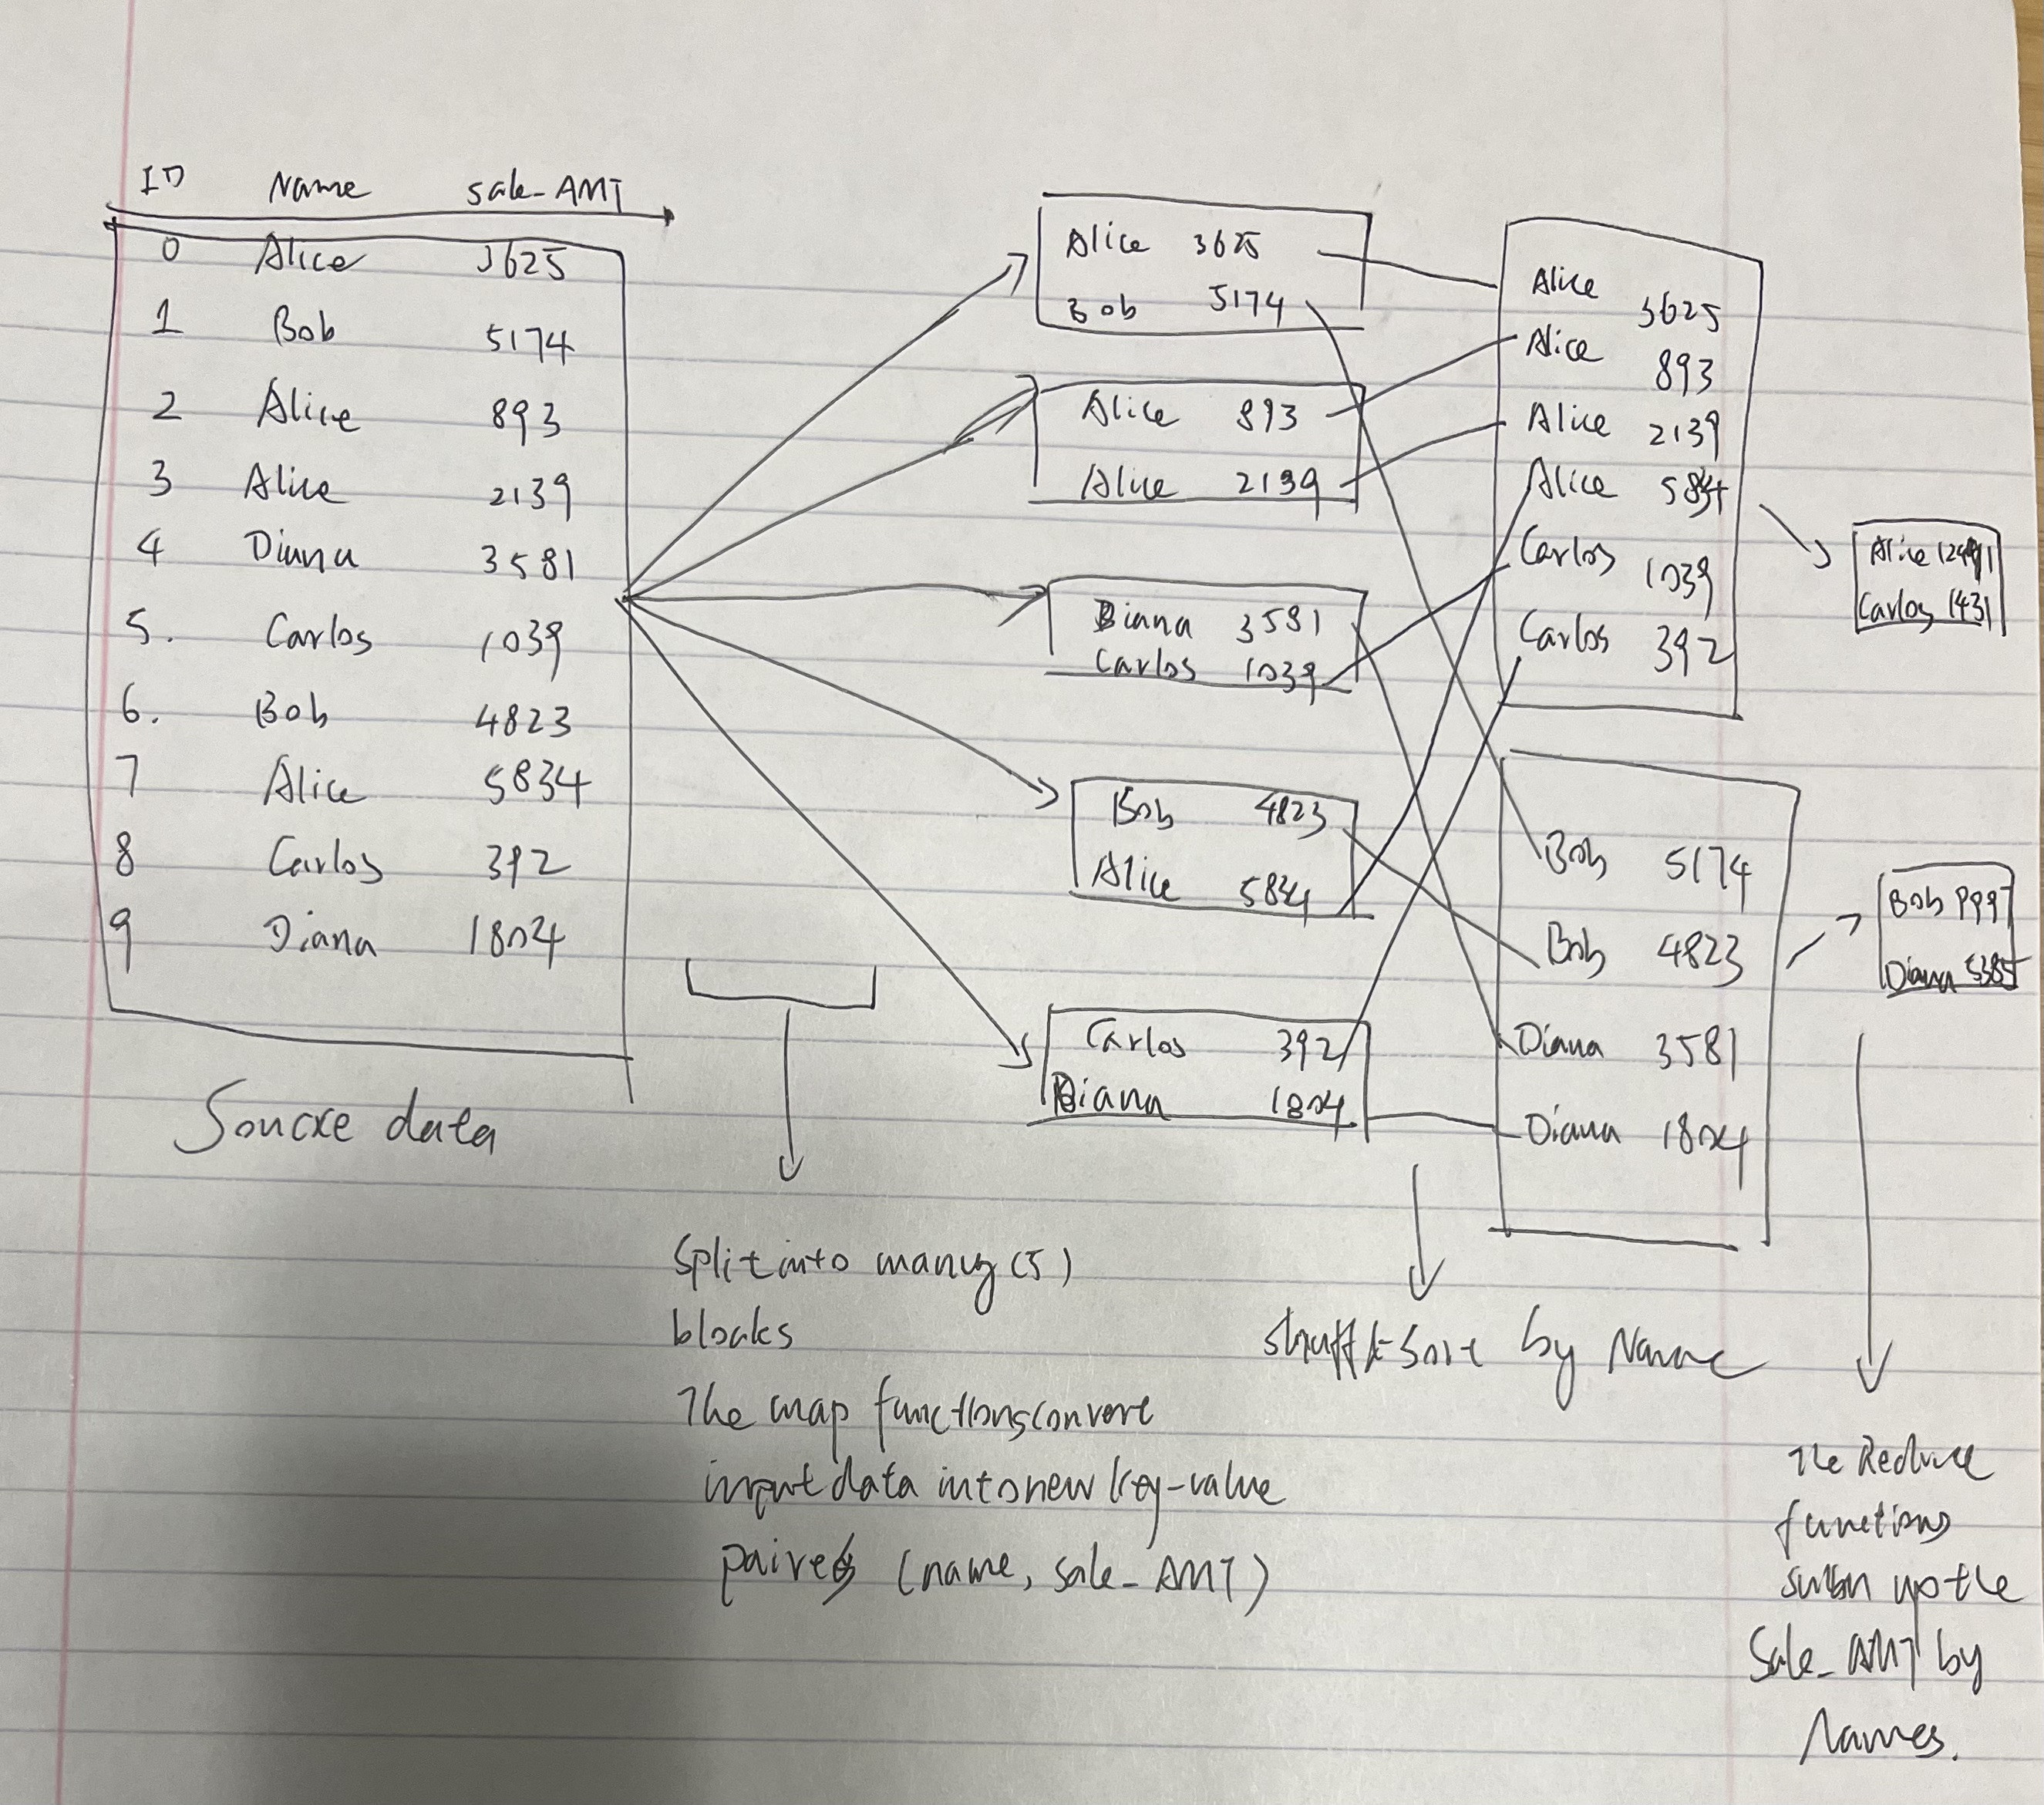 ID Name sale_AMT
0 Alice 3625
1 Bob 5174
2 Alice 893
3 Alice 2139
4 Diana 3581
5. Carlos 1039
6. Bob 4823
7 Alice 5834
8 Carlos 392
9 Diana 1804
Soucxe data
Alice 3625
Bob 5174
Alice 893
Alice 2139
Diana 3581
Carlos 1039
Bob 4823
Alice 5834
Carlos 392
Diana 1804
Alice 3625
Alice 893
Alice 2139
Alice 5834
Carlos 1039
Carlos 392
Bob 5174
Bob 4823
Diana 3581
Diana 1804
Alice 12491
Carlos 1431
Bob 9997
Diana 5385
Split into many (5)
bloaks
The map functions convert
input data into new key-value
paires (name, sale_AMT)
sort by Name
The Reduce
functions
up the
Sale_AMT by
Names.